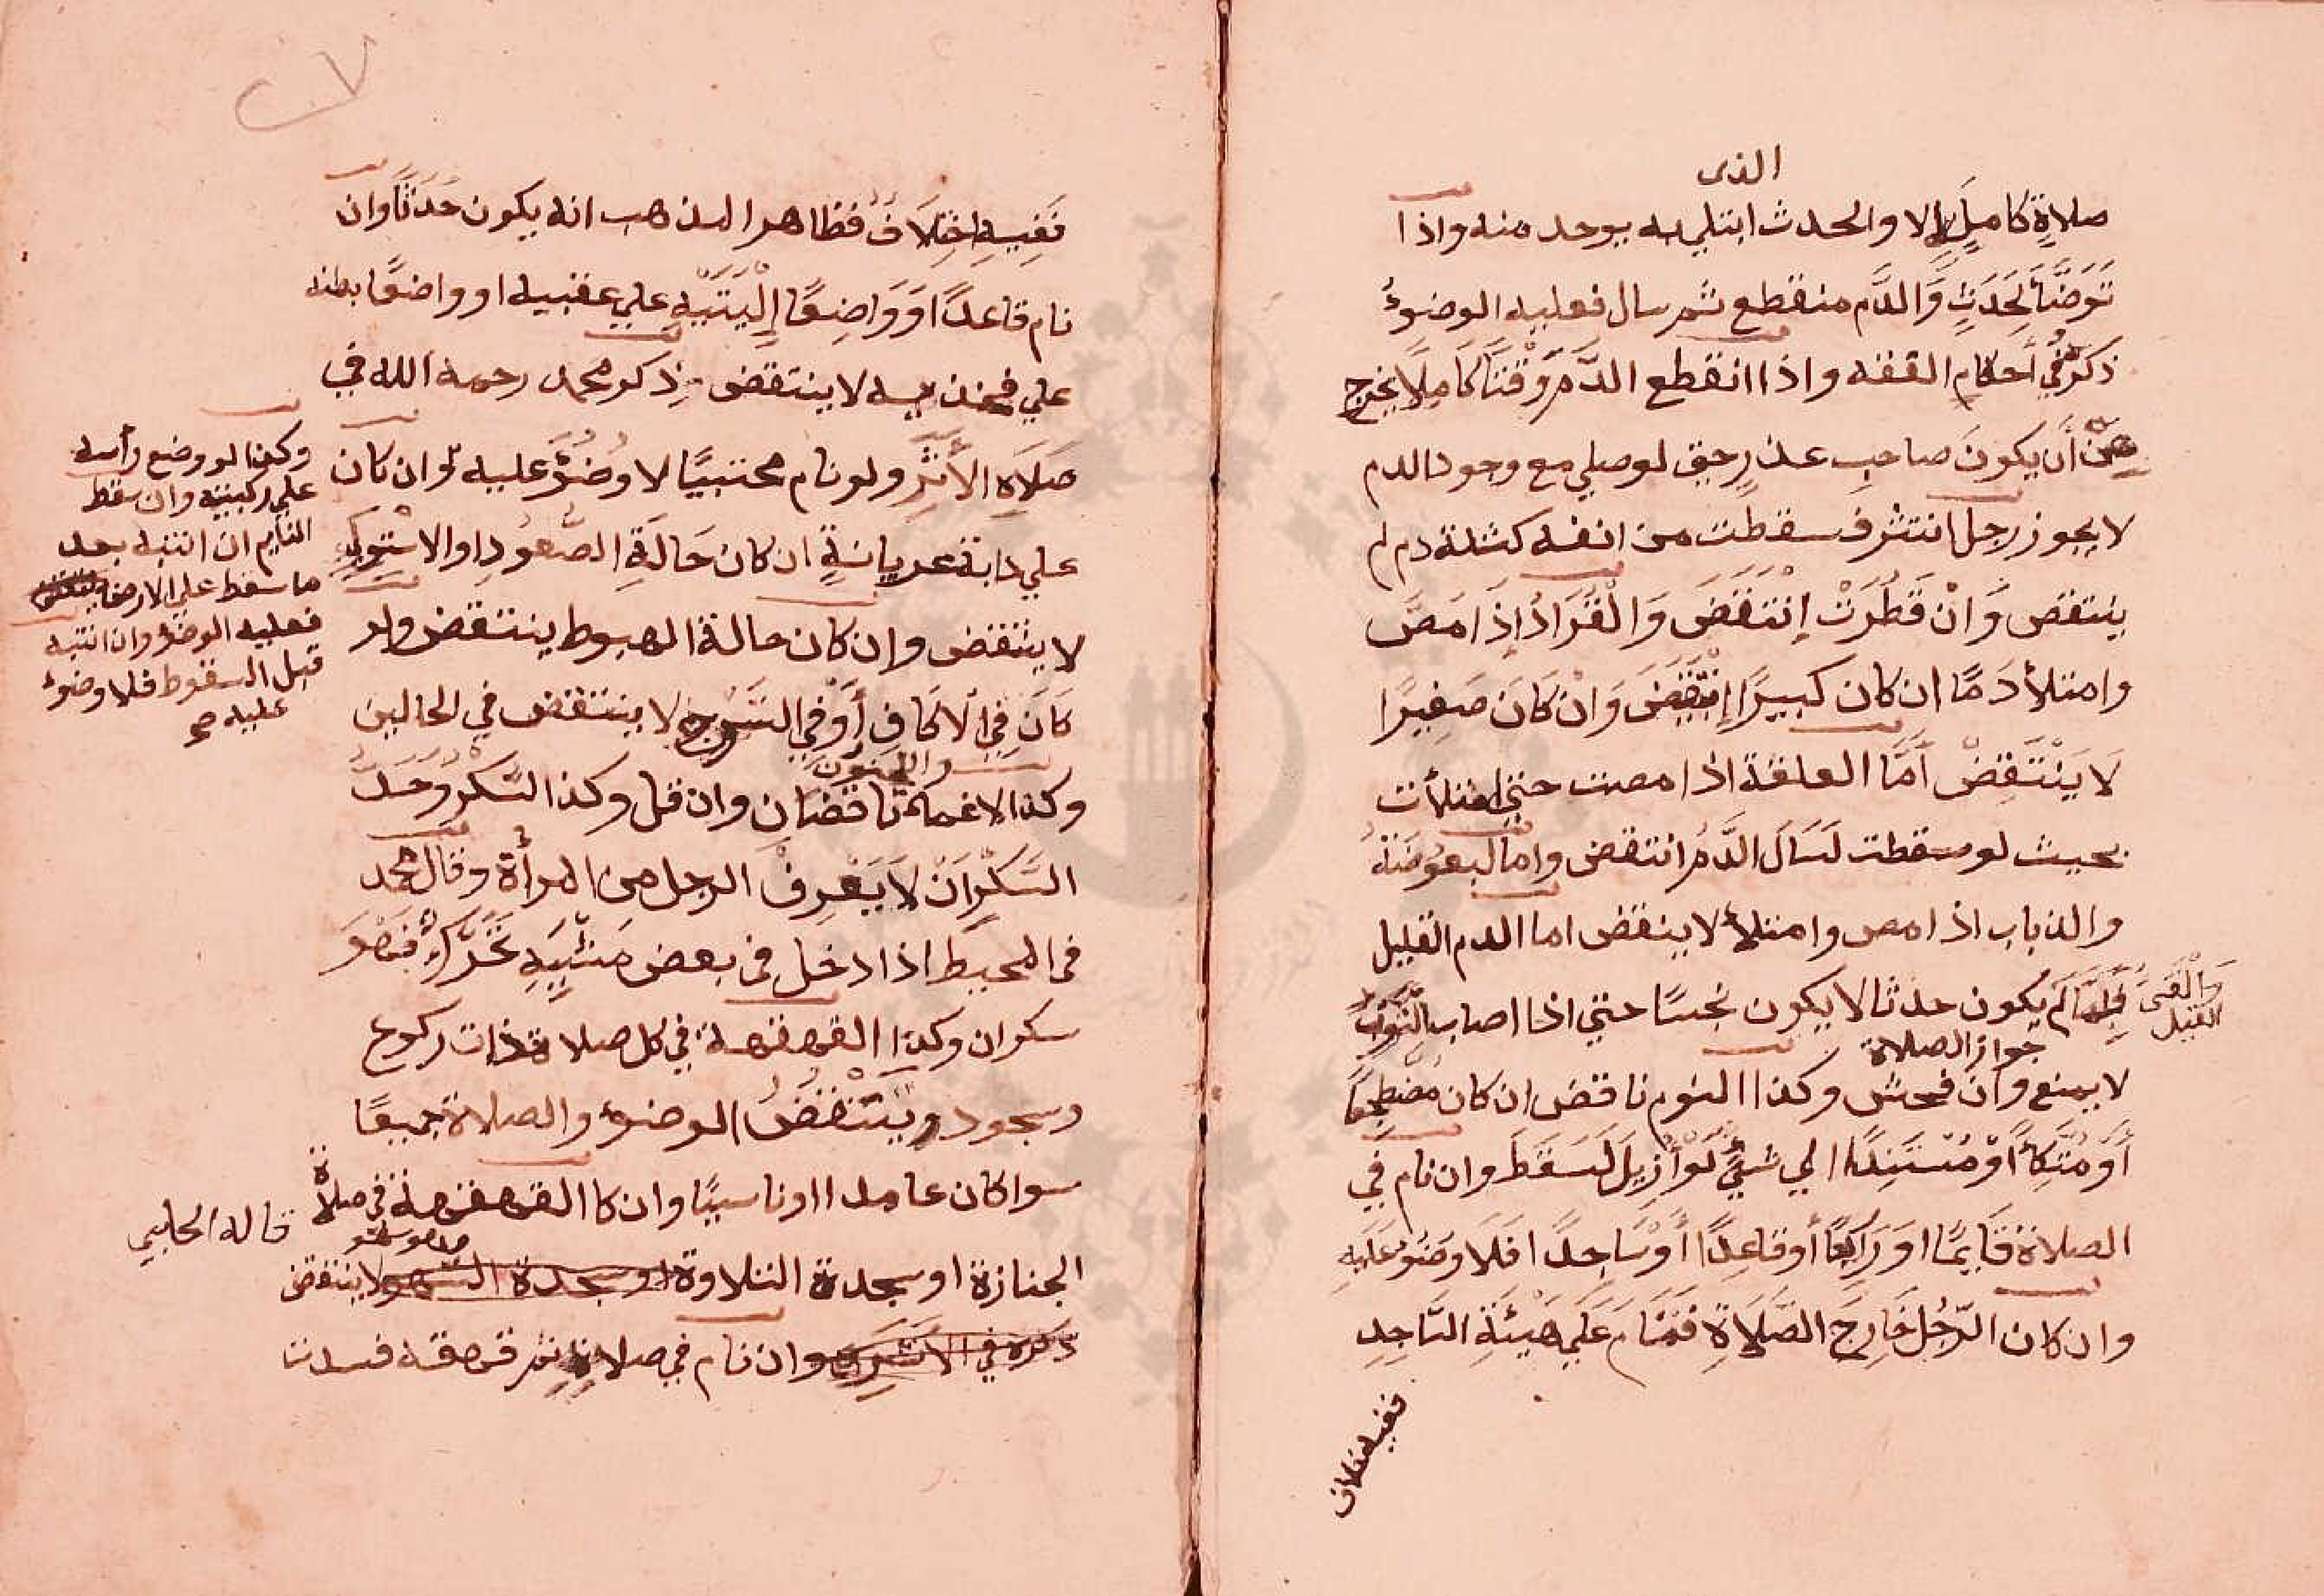 الذى
صلاةٍ كاملةٍ إلا والحدث ابتلي به يوجد منه واذا
تَوَضَّأَ لِحَدَثٍ وَالدَّم منقطع ثمر سال فعليه الوضوءُ
ذكرهُ في أحكام الفقه واذا انقطع الدَّم وَقْتًا كَامِلًا يخرج
من أَن يكونَ صاحب عذرٍ حتى لو صلي مع وجود الدم
لا يجوز رجل انتثر فسقطت من انفه كتلة دم لم
ينتقض وَانْ قَطُرَتْ إِنْتَقَضَ وَالْقُرَادُ إِذَا مَصَّ
وامتلأ دَمًا ان كان كبيرًا إِنْتَقَضَ وَانْ كَانَ صَغِيرًا
لَا يَنْتَقِضْ أَمَّا العلقة اذا مصت حتى امتلأت
بحيث لو سقطت لَسَالَ الدَّمُ انتقض واما البعُوضَةُ
والذباب اذا مص وامتلأ لا ينقض اما الدم القليل
وَالْقَىُ القليل
فَلَمَّا لَم يكون حدثا لا يكون نجسًا حتي اذا اصاب الثوب
جواز الصلاة
لا يمنع وانْ فحش وكذا النوم ناقض ان كان مُضْطَجِعًا
أَوْ مُتَّكِأً اَوْ مُسْتَنِدًا الي شيءٍ لَوْ أُزِيلَ لَسَقَطَ وان نام في
الصلاة قَايِمًا اوَ رَاكِعًا أوقاعِدًا أَوْ سَاجِدًا فَلَا وضُوءَ عَلَيهِ
وان كان الرَّجُل خَارِجَ الصَّلَاةِ فَنَامَ عَلَى هَيْئَةِ السَّاجِدِ
ففيه اختلاف
فَفِيهِ إِخْتِلَافٌ فظاهر المذهب انه يكون حَدَثًا وان
نام قاعدًا اوَ وَاضِعًا إِلْيَتَيْهِ علي عقبيه او واضعًا بطنه
علي فخذيه لا ينتقض ذكر محمد رحمه الله في
صَلَاةِ الأَثَرِ ولو نام محتبيًا لا وُضُوءَ عليه وان كان
علي دابة عريانةٍ ان كان حَالَةِ الصُّعُودِ او الاستوي
لا ينتقض وان كان حالة الهبوط ينتقض ولو
كَانَ فِي الْاكَافِ أَوْ في السَّرْجِ لا ينتقض في الحالين
والجنون
وكذا الاغماءُ ناقضان وان قل وكذا السُّكْرُ وَحَدُّ
السَّكْرَانَ لَا يَعْرِفْ الرجل من المرأة وقال محمد
فى المحيط اذا دخل فى بعض مَشْيِهِ تَحَرُّكٌ فَهُوَ
سكران وكذا القهقهة في كل صلاة ذات ركوع
وسجود وينتقضُ الوضوءُ والصلاة جميعًا
سوا كان عامدا او ناسيًا وان كا القهقهة في صلاة
الجنازة او سجدة التلاوة او سجدة السهو لا ينتقض
ذكره في الاثر وان نام في صلاة ثم قهقه فسدت
قاله الحلبي
وكذا لو وضع رأسه
علي ركبتيه وان سقط
النايم ان انتبه بعد
ما سقط علي الارض
فعليه الوضوء وان انتبه
قبل السقوط فلا وضوءَ
عليه صح